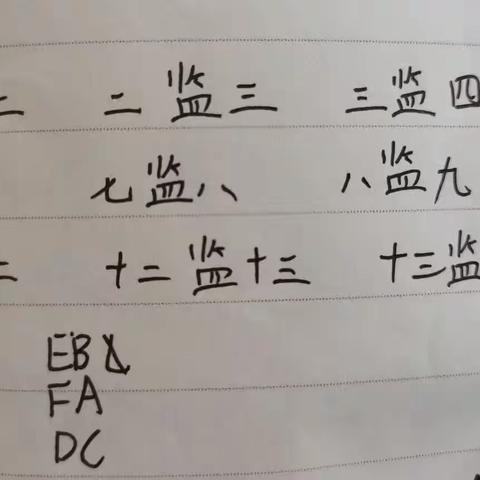 二 二监三 三监四
七监八 八监九
二 十二监十三 十三监
EB
FA
DC